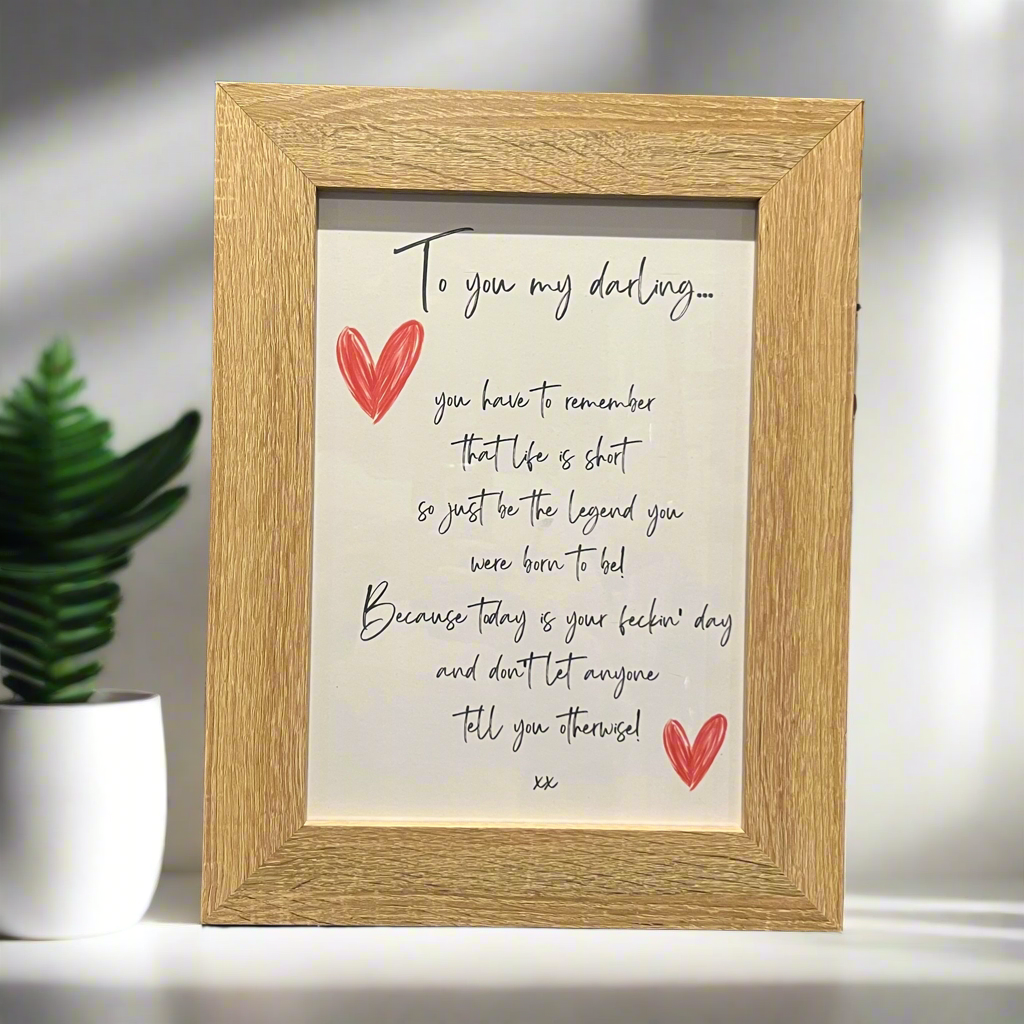 To you my darling...
you have to remember
that life is short
so just be the legend you
were born to be!
Because today is your feckin' day
and don't let anyone
tell you otherwise!
xx